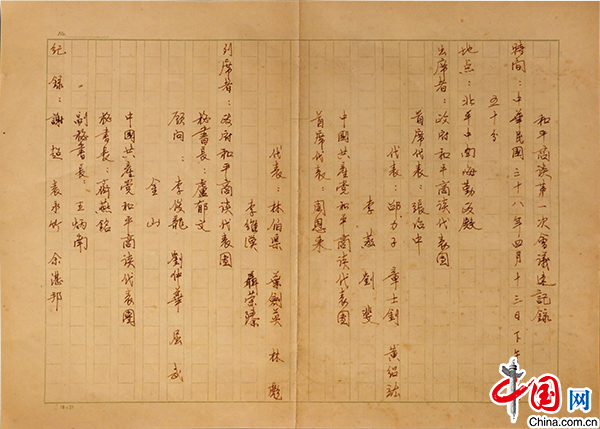 和平商谈第一次會議速記錄
時间：中華民國三十八年四月十三日下午
五十分
地点：北平中南海勤政殿
出席者：政府和平商谈代表團
首席代表：張治中
代表：邵力子 章士釗 黃紹竑
李蒸 劉斐
中國共產党和平商谈代表團
首席代表：周恩来
代表：林伯渠 葉劍英 林彪
李維漢 聶荣臻
列席者：政府和平商谈代表團
秘書長：盧郁文
顧问：李俊龍 劉仲華 屈武
金山
中國共產党和平商谈代表團
秘書長：齊燕銘
副秘書長：王炳南
紀錄：謝超 袁水竹 余湛邦
No.
中国网
China.com.cn